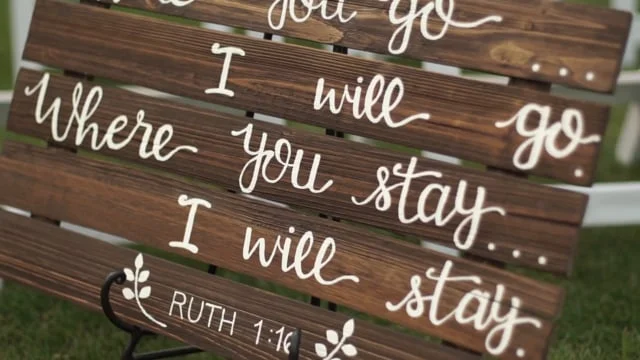 you go
....
I will go.
Where you stay...
I will stay.
RUTH 1:16